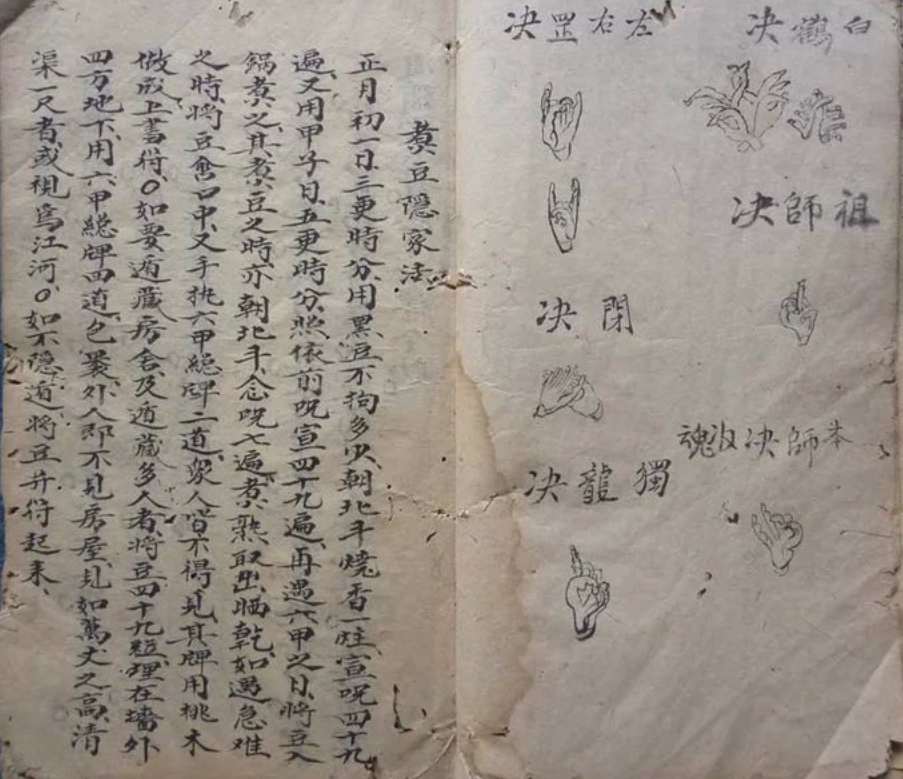 白鶴决
左右罡决
祖師决
閉决
本師决收魂
獨龍决
煑豆隱家法
正月初一日、三更時分、用黑豆不拘多少、朝北斗燒香一炷、宣呪四十九
遍、又用甲子日、五更時分、照依前呪宣四十九遍、再遇六甲之日、將豆入
鍋煑之、其煑豆之時、亦朝北斗、念呪七遍、煑熟、取出晒乾、如遇急难
之時、將豆含口中、又手执六甲総牌二道、衆人皆不得見、其牌用桃木
做成、上書符、〇如要遁藏房舍、及遁藏多人者、將豆四十九粒、埋在墻外
四方地下、用六甲総牌四道、包裹、外人即不見房屋、見如萬丈之高、清
渠一尺者、或視爲江河、〇如不隱遁、將豆并符起来、